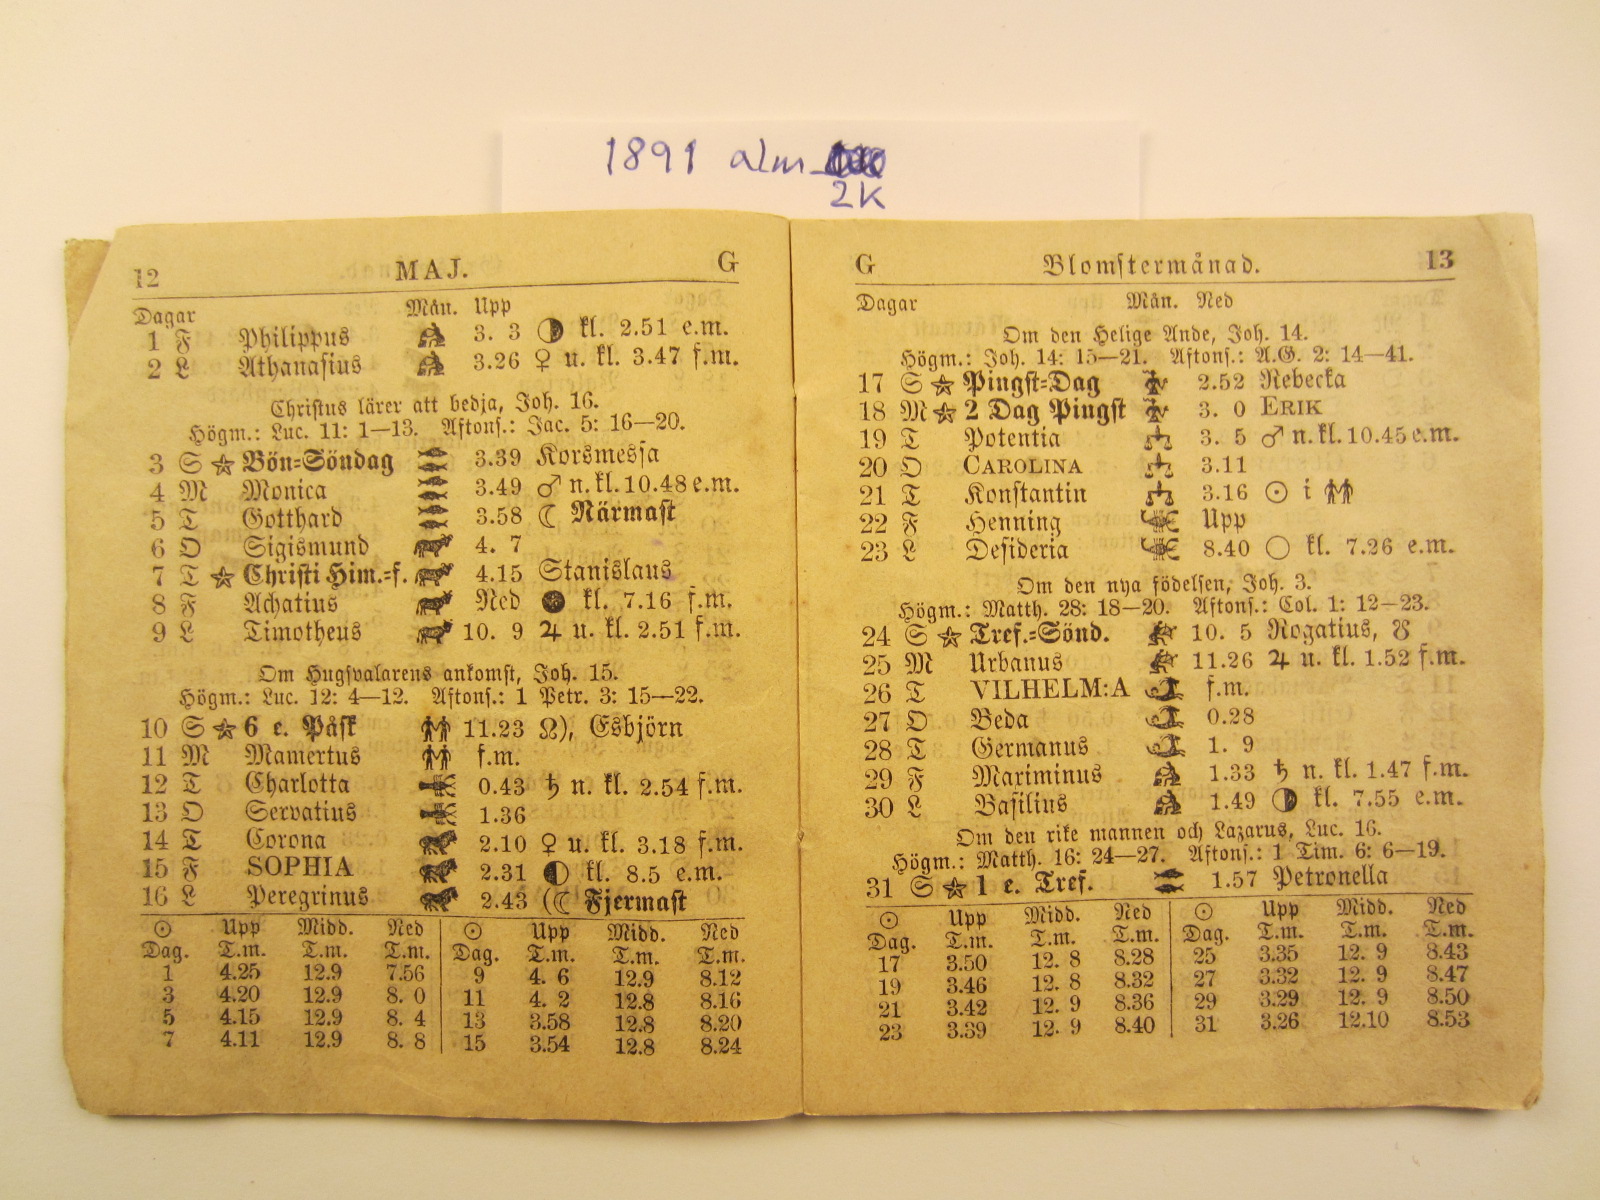 1891 alm
2K
12 MAJ. G
Dagar Mån. Upp
1 F Philippus 3. 3 kl. 2.51 e.m.
2 L Athanasius 3.26 ♀ u. kl. 3.47 f.m.
Christus lärer att bedja, Joh. 16.
Högm.: Luc. 11: 1—13. Aftons.: Jac. 5: 16—20.
3 S ☆ Bön=Söndag 3.39 Korsmessa
4 M Monica 3.49 ♂ n. kl. 10.48 e.m.
5 T Gotthard 3.58 ☾ Närmast
6 O Sigismund 4. 7
7 T ☆ Christi Him.=f. 4.15 Stanislaus
8 F Achatius Ned ● kl. 7.16 f.m.
9 L Timotheus 10. 9 ♃ u. kl. 2.51 f.m.
Om Hugsvalarens ankomst, Joh. 15.
Högm.: Luc. 12: 4—12. Aftons.: 1 Petr. 3: 15—22.
10 S ☆ 6 e. Påsk 11.23 ☊), Esbjörn
11 M Mamertus f.m.
12 T Charlotta 0.43 ♄ n. kl. 2.54 f.m.
13 O Servatius 1.36
14 T Corona 2.10 ♀ u. kl. 3.18 f.m.
15 F SOPHIA 2.31 kl. 8.5 e.m.
16 L Peregrinus 2.43 (☾ Fjermast
☉ Upp Midd. Ned ☉ Upp Midd. Ned
Dag. T.m. T.m. T.m. Dag. T.m. T.m. T.m.
1 4.25 12.9 7.56 9 4. 6 12.9 8.12
3 4.20 12.9 8. 0 11 4. 2 12.8 8.16
5 4.15 12.9 8. 4 13 3.58 12.8 8.20
7 4.11 12.9 8. 8 15 3.54 12.8 8.24
G Blomstermånad. 13
Dagar Mån. Ned
Om den Helige Ande, Joh. 14.
Högm.: Joh. 14: 15—21. Aftons.: A.G. 2: 14—41.
17 S ☆ Pingst=Dag 2.52 Rebecka
18 M ☆ 2 Dag Pingst 3. 0 ERIK
19 T Potentia 3. 5 ♂ n. kl. 10.45 e.m.
20 O CAROLINA 3.11
21 T Konstantin 3.16 ☉ i
22 F Henning Upp
23 L Desideria 8.40 ○ kl. 7.26 e.m.
Om den nya födelsen, Joh. 3.
Högm.: Matth. 28: 18—20. Aftons.: Col. 1: 12—23.
24 S ☆ Tref.=Sönd. 10. 5 Rogatius, ☋
25 M Urbanus 11.26 ♃ u. kl. 1.52 f.m.
26 T VILHELM:A f.m.
27 O Beda 0.28
28 T Germanus 1. 9
29 F Maximinus 1.33 ♄ n. kl. 1.47 f.m.
30 L Basilius 1.49 kl. 7.55 e.m.
Om den rike mannen och Lazarus, Luc. 16.
Högm.: Matth. 16: 24—27. Aftons.: 1 Tim. 6: 6—19.
31 S ☆ 1 e. Tref. 1.57 Petronella
☉ Upp Midd. Ned ☉ Upp Midd. Ned
Dag. T.m. T.m. T.m. Dag. T.m. T.m. T.m.
17 3.50 12. 8 8.28 25 3.35 12. 9 8.43
19 3.46 12. 8 8.32 27 3.32 12. 9 8.47
21 3.42 12. 9 8.36 29 3.29 12. 9 8.50
23 3.39 12. 9 8.40 31 3.26 12.10 8.53